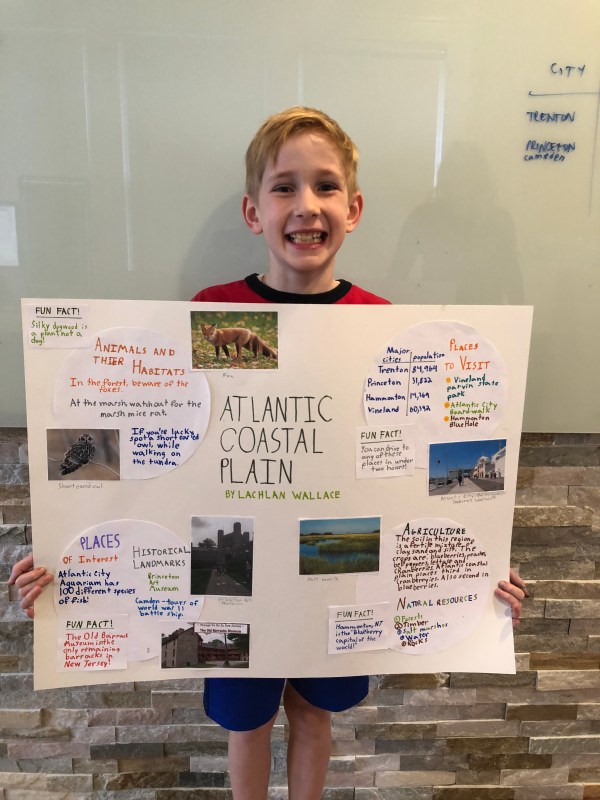 CITY
TRENTON
PRINCETON
camden
FUN FACT!
Silky dogwood is
a plant not a
dog!
ANIMALS AND
THIER HABITATS
In the forest, beware of the
foxes.
At the marsh watch out for the
marsh mice rat.
If you're lucky
spot a short eared
owl, while
walking on
the tundra.
Fox
Short eared owl
ATLANTIC
COASTAL
PLAIN
BY LACHLAN WALLACE
Major
cities population
Trenton 84,964
Princeton 31,822
Hammonton 14,769
Vineland 60,192
PLACES
TO VISIT
Vineland
parvin state
park
Atlantic City
Boardwalk
Hammonton
Blue Hole
FUN FACT!
You can drive to
any of these
places in under
two hours!
PLACES
OF Interest
Atlantic City
Aquarium has
100 different species
of fish!
HISTORICAL
LANDMARKS
Princeton
Art
Museum
Camden-tours of
world war 11
battle ship.
FUN FACT!
The Old Barracks
Museum is the
only remaining
barracks in
New Jersey!
The Old Barracks Museum
Salt marsh
AGRICULTURE
The soil in this region
is a fertile mixture of
clay sand and silt. The
crops are: blueberries, peaches,
bell peppers, lettuce and
cranberries. Atlantic coastal
plain places third in
cranberries. Also second in
blueberries.
NATURAL RESOURCES
Forests
Timber
Salt marshes
Water
Rocks
FUN FACT!
Hammonton, NJ
is the "Blueberry
capital of the
world!"